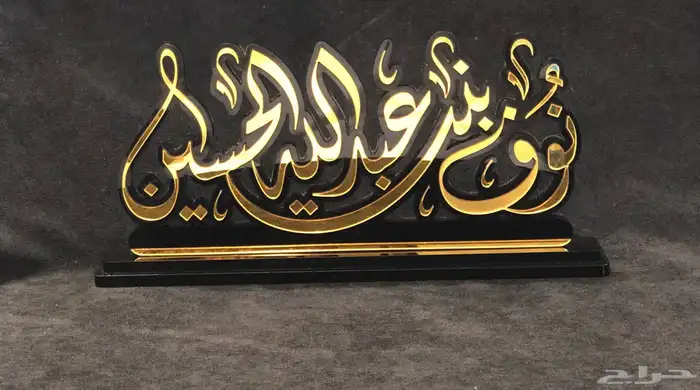 نُوف بنت عبدالله الحسين
حراج